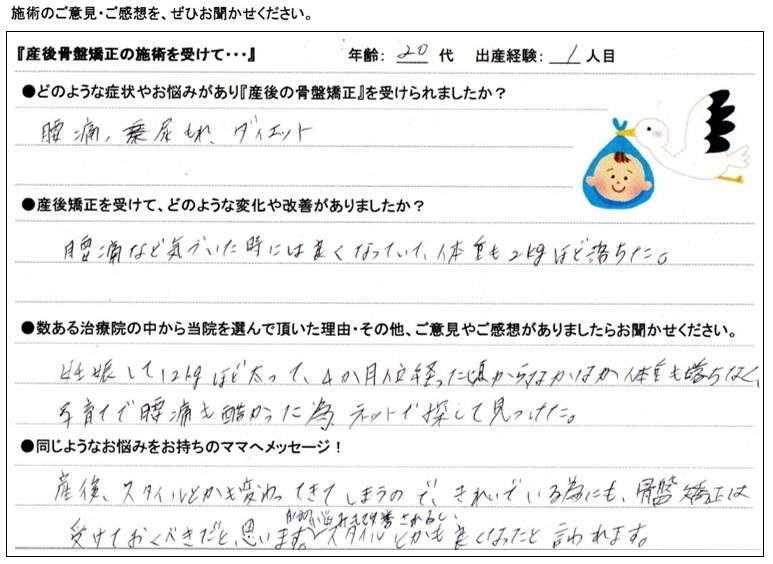 施術のご意見・ご感想を、ぜひお聞かせください。
『産後骨盤矯正の施術を受けて・・・』 年齢： 20 代 出産経験： 1 人目
●どのような症状やお悩みがあり『産後の骨盤矯正』を受けられましたか？
腰痛、尿もれ、ダイエット
●産後矯正を受けて、どのような変化や改善がありましたか？
腰痛など気づいた時には良くなっていて、体重も2kgほど落ちた。
●数ある治療院の中から当院を選んで頂いた理由・その他、ご意見やご感想がありましたらお聞かせください。
妊娠して12kgほど太って、4か月位経った頃からなかなか体重も落ちなく、
子育てで腰痛も酷かった為、ネットで探して見つけた。
●同じようなお悩みをお持ちのママへメッセージ！
産後、スタイルとかも変わってきてしまうので、きれいでいる為にも、骨盤矯正は
悩みも改善されるし、
受けておくべきだと思います。スタイルとかも良くなったと言われます。